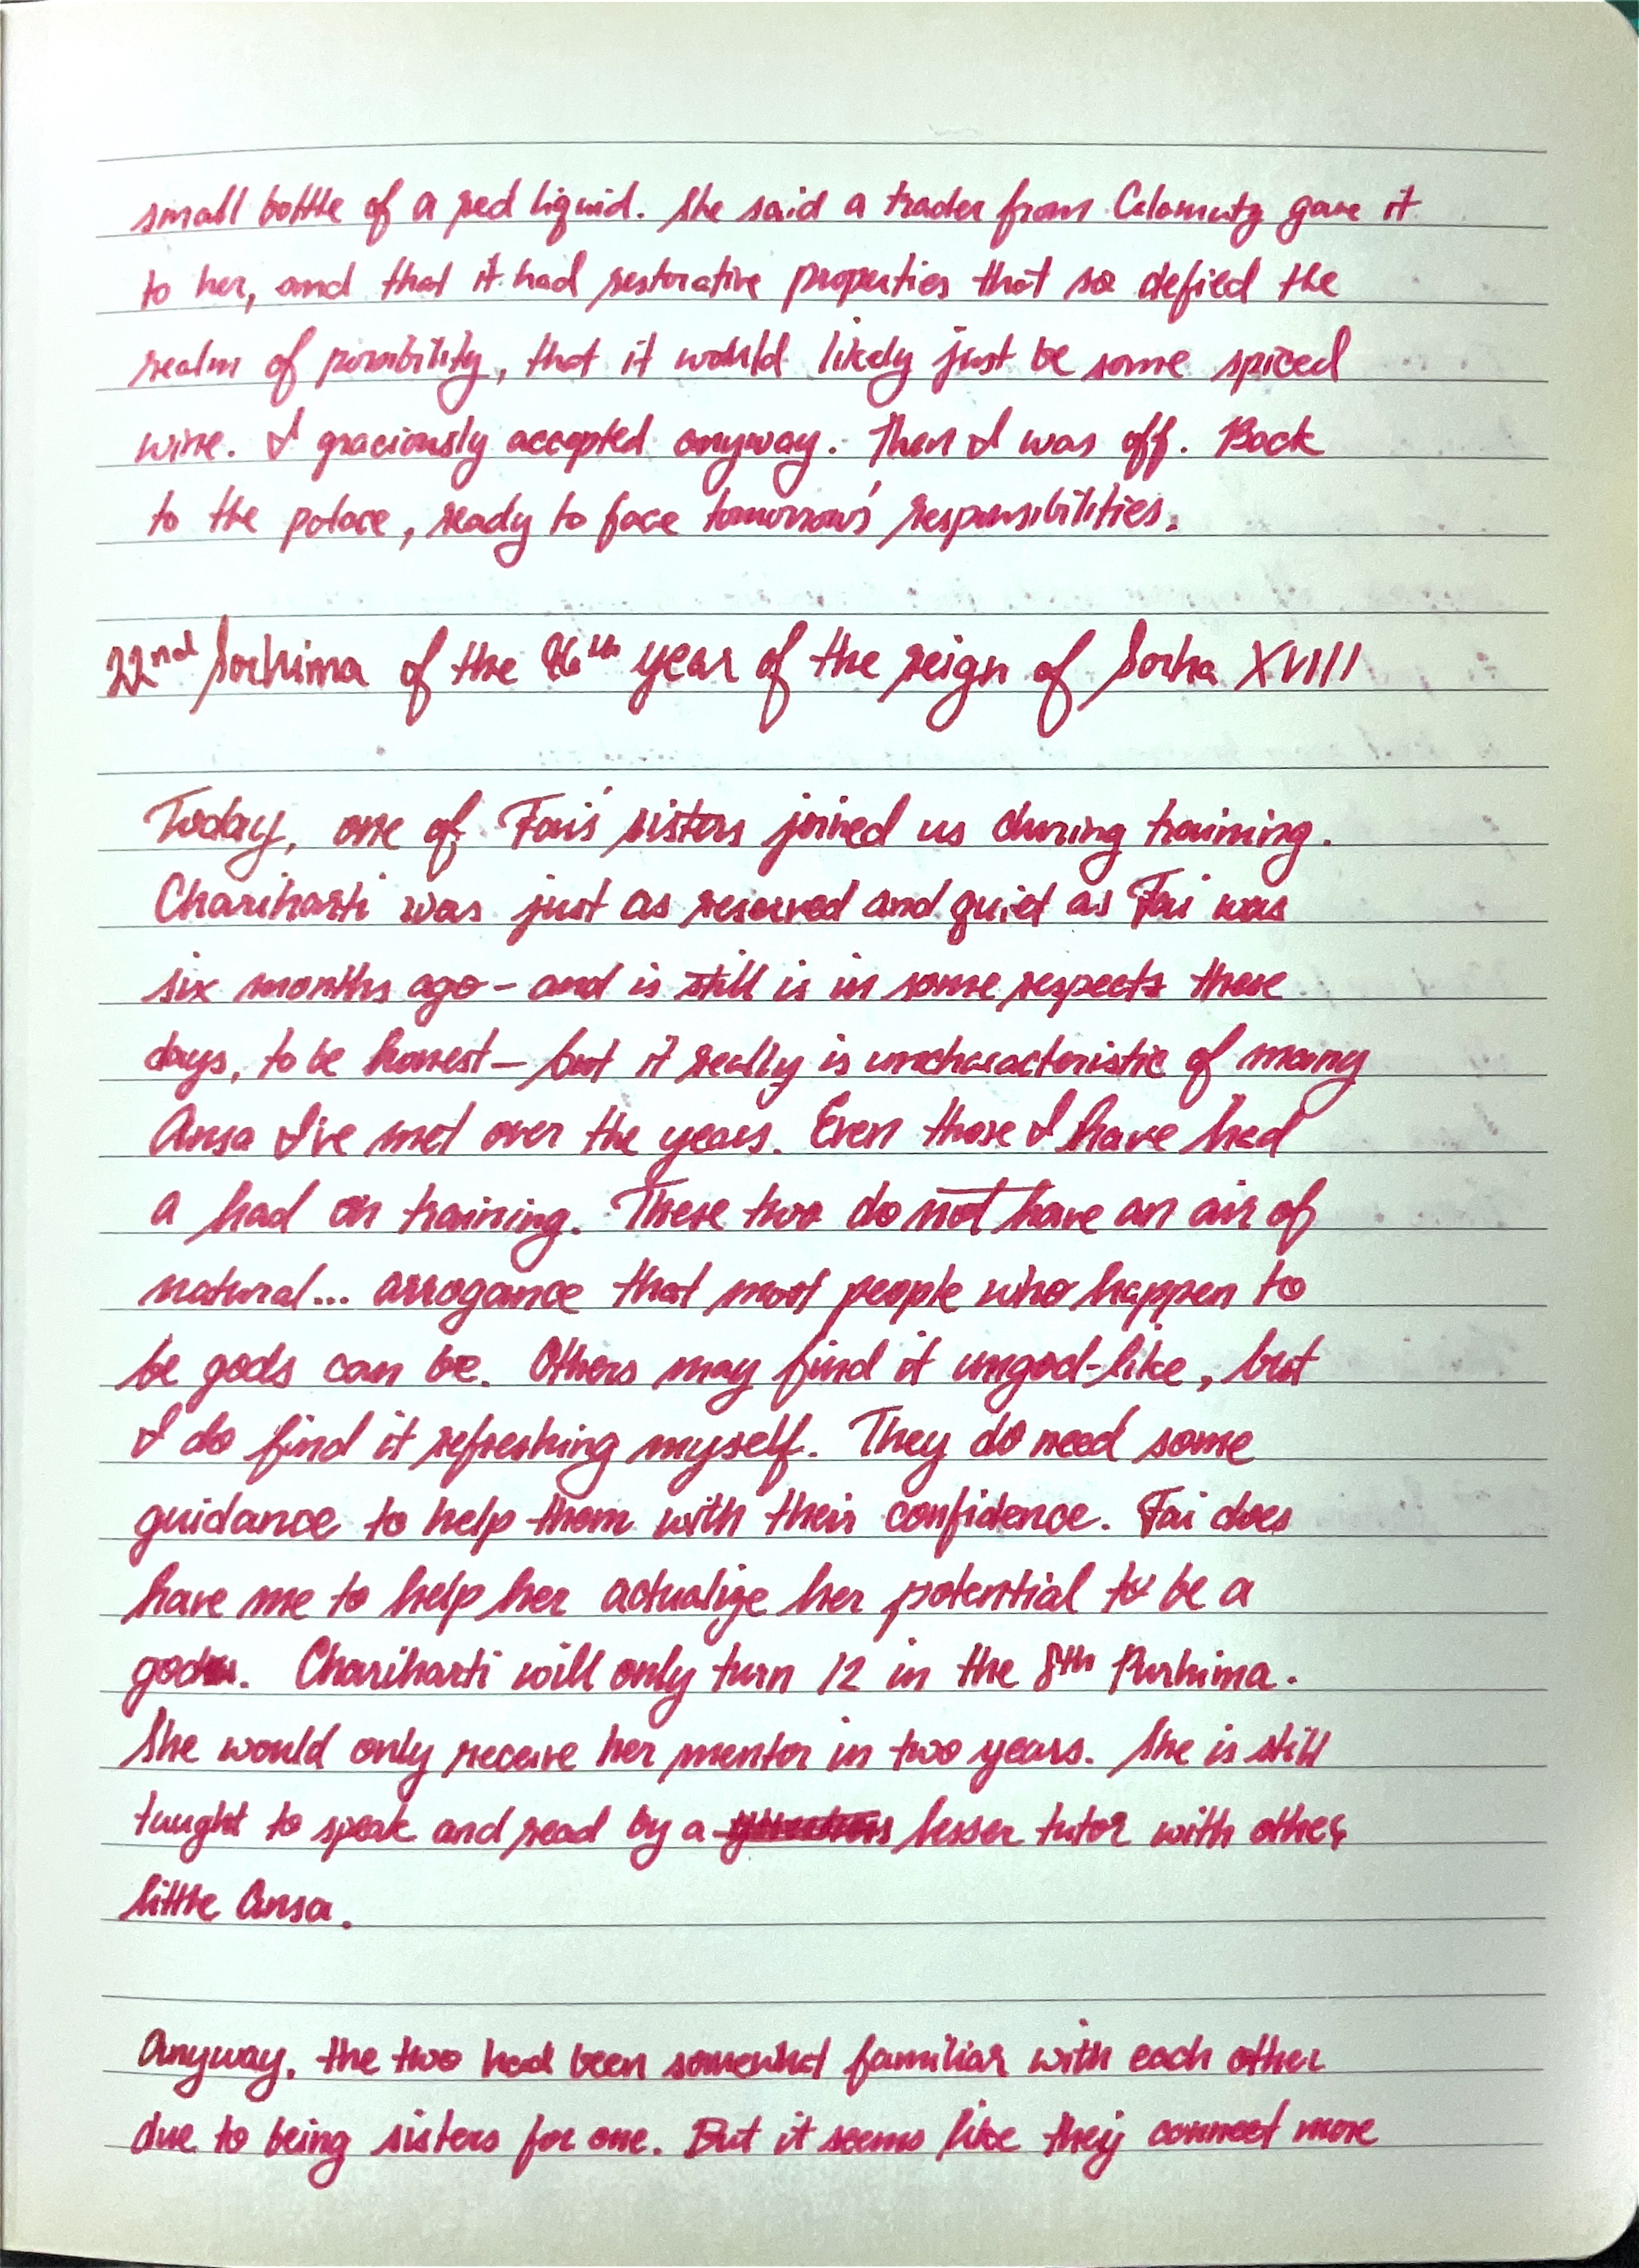 small bottle of a red liquid. She said a trader from Calamutz gave it
to her, and that it had restorative properties that so defied the
realm of possibility, that it would likely just be some spiced
wine. I graciously accepted anyway. Then I was off. Back
to the palace, ready to face tomorrow's responsibilities.
22nd Sorhima of the 96th year of the reign of Sorha XVIII
Today, one of Fai's sisters joined us during training.
Chariharti was just as reserved and quiet as Fai was
six months ago - and is still is in some respects these
days, to be honest - but it really is uncharacteristic of many
Ansa I've met over the years. Even those I have had
a had on training. These two do not have an air of
natural... arrogance that most people who happen to
be gods can be. Others may find it ungod-like, but
I do find it refreshing myself. They do need some
guidance to help them with their confidence. Fai does
have me to help her actualize her potential to be a
god. Chariharti will only turn 12 in the 8th Purhima.
She would only receive her mentor in two years. She is still
taught to speak and read by a lesser tutor with other
little Ansa.
Anyway, the two had been somewhat familiar with each other
due to being sisters for one. But it seems like they connect more